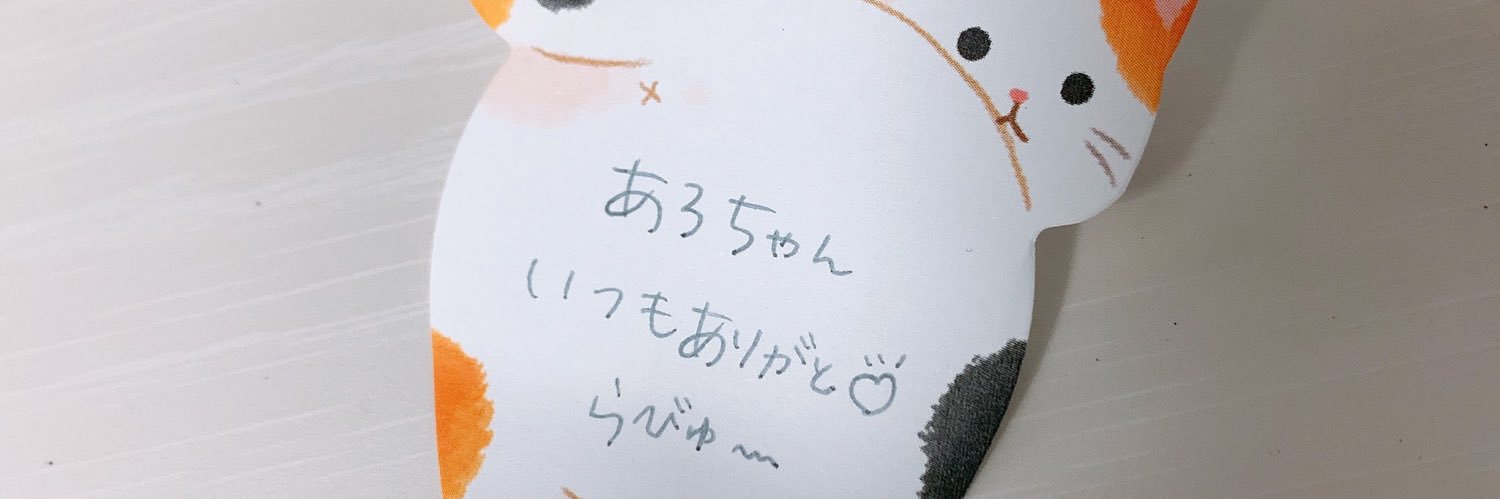 あろちゃん
いつもありがと♡
らびゅ〜